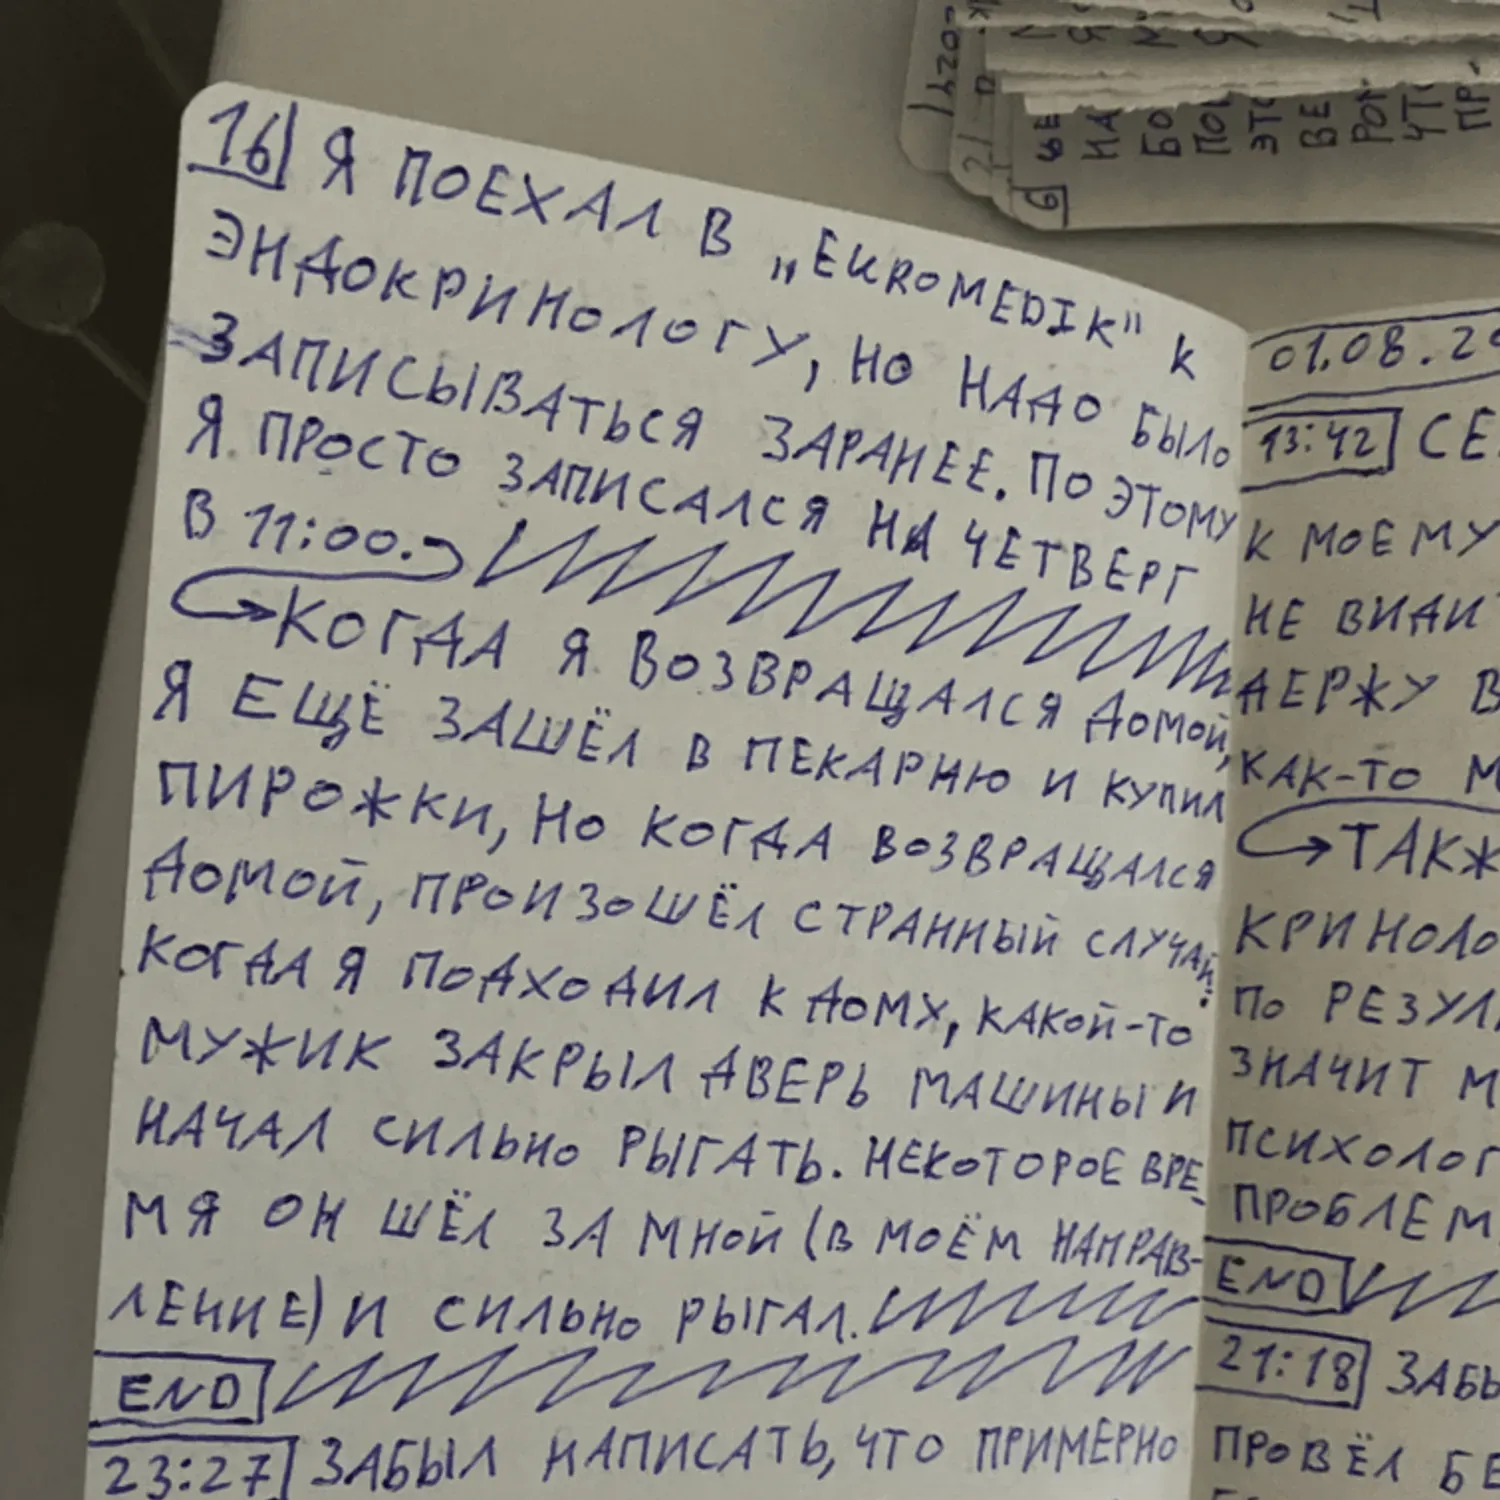 16 Я ПОЕХАЛ В „EUROMEDIK" К
ЭНДОКРИНОЛОГУ, НО НАДО БЫЛО
ЗАПИСЫВАТЬСЯ ЗАРАНЕЕ. ПО ЭТОМУ
Я ПРОСТО ЗАПИСАЛСЯ НА ЧЕТВЕРГ
В 11:00.
КОГДА Я ВОЗВРАЩАЛСЯ ДОМОЙ,
Я ЕЩЁ ЗАШЁЛ В ПЕКАРНЮ И КУПИЛ
ПИРОЖКИ, НО КОГДА ВОЗВРАЩАЛСЯ
ДОМОЙ, ПРОИЗОШЁЛ СТРАННЫЙ СЛУЧАЙ:
КОГДА Я ПОДХОДИЛ К ДОМУ, КАКОЙ-ТО
МУЖИК ЗАКРЫЛ ДВЕРЬ МАШИНЫ И
НАЧАЛ СИЛЬНО РЫГАТЬ. НЕКОТОРОЕ ВРЕ-
МЯ ОН ШЁЛ ЗА МНОЙ (В МОЁМ НАПРАВ-
ЛЕНИЕ) И СИЛЬНО РЫГАЛ.
END
23:27 ЗАБЫЛ НАПИСАТЬ, ЧТО ПРИМЕРНО
01.08.20
13:42 СЕ
К МОЕМУ
НЕ ВИДИТ
ДЕРЖУ В
КАК-ТО М
ТАКЖ
КРИНОЛО
ПО РЕЗУЛ
ЗНАЧИТ М
ПСИХОЛОГ
ПРОБЛЕМ
END
21:18 ЗАБЫ
ПРОВЁЛ БЕ
6
НА
БО
ПО
ЭТО
ВЕ
РО
ЧТО
ПР